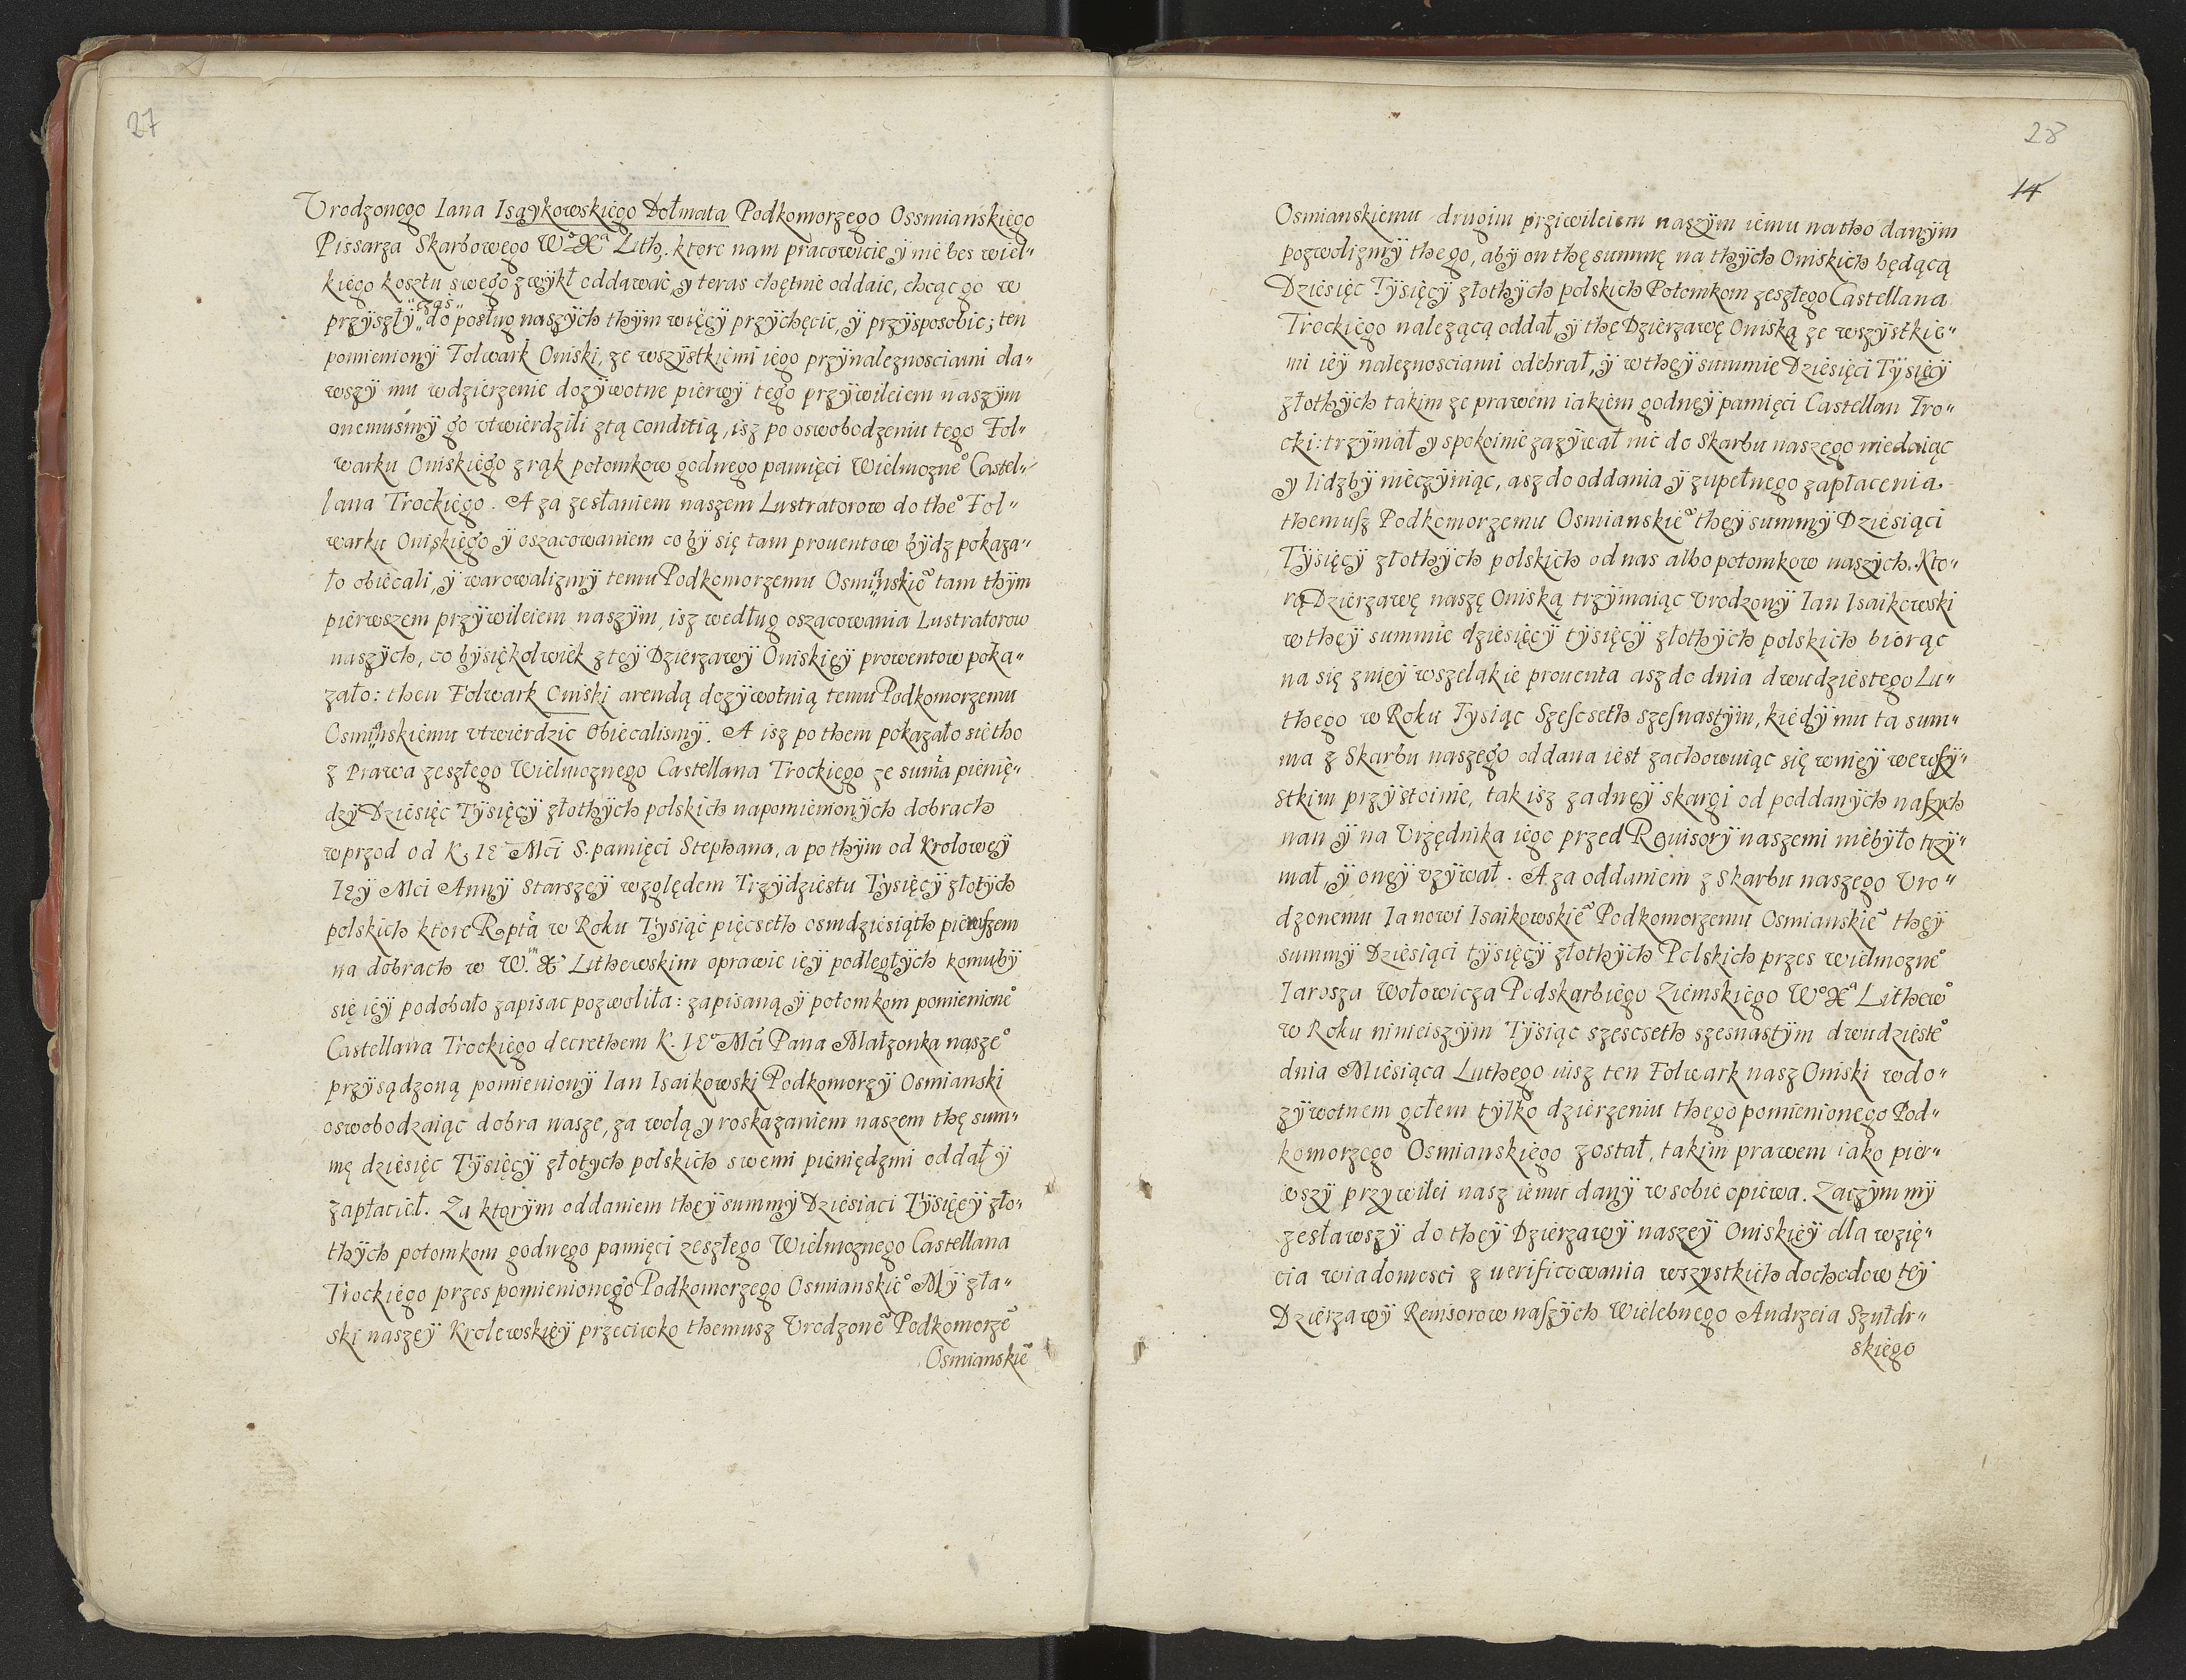 27
Vrodzonego Iana Isaykowskiego Dołmata Podkomorzego Ossmianskiego
Pissarza Skarbowego Wº Xª Lith. ktore nam pracowicie ÿ nie bes wiel„
kiego kosztu swego zwykł oddawać, y teras chętnie oddaie, chcąc go w
„czas„
przyszłÿ „ do posług naszÿch thÿm więcÿ przÿchęcic, ÿ przÿsposobic; ten
pomienionÿ Folwark Oniski, ze wszÿstkiemi iego przÿnaleznosciami da„
wszÿ mu wdzierzenie dozÿwotne pierwÿ tego przÿwileiem naszÿm
onemusmÿ go vtwierdzili ztą conditią, isz po oswobodzeniu tego Fol„
warku Oniskiego zrąk potomkow godnego pamięci Wielmozneº Castel„
lana Trockiego. A za zesłaniem naszem Lustratorow do theº Fol„
warku Oniskiego ÿ oszacowaniem co bÿ się tam prouentow bÿdz pokaza„
ło obiecali, ÿ warowalizmÿ temu Podkomorzemu Osmianskieº tam thÿm
pierwszem przÿwileiem naszÿm, isz według oszacowania Lustratorow
naszÿch, co bÿsiękolwiek ztey Dzierzawÿ Oniskięÿ prowentow poka„
zało: then Folwark Oniski arendą dozÿwotnią temu Podkomorzemu
Osmianskiemu vtwierdzic obiecalismÿ. A isz po them pokazało siętho
z Prawa zeszłego Wielmoznego Castellana Trockiego ze suma pienię„
dzÿ Dziesięc Tÿsięcÿ złothÿch polskich napomienionÿch dobrach
wprzod od K. IE Mci S. pamięci Stephana, a po thÿm od Krolowęÿ
Ięÿ Mci Annÿ Starszęÿ względem Trzÿdziestu Tÿsięcÿ złotÿch
polskich ktore Rptą w Roku Tysiąc pięcseth osmdziesiąth pierwszem
na dobrach w W. X Lithewskim oprawie ięÿ podległÿch komubÿ
się ięÿ podobało zapisac pozwoliła: zapisaną ÿ potomkom pomienioneº
Castellana Trockiego decrethem K. IEº Mci Pana Małzonka naszeº
przÿsądzoną pomienionÿ Ian Isaikowski Podkomorzÿ Osmianski
oswobodzaiąc dobra nasze, za wolą y roskazaniem naszem thę sum„
mę dziesięc Tÿsięcÿ złotych polskich swemi pieniędzmi oddał ÿ
zapłacieł. Za ktorÿm oddaniem thęÿ summÿ Dziesiąci Tÿsięcÿ zło„
thÿch potomkom godnego pamięci zeszłego Wielmoznego Castellana
Trockiego przes pomienionego Podkomorzego Osmianskieº Mÿ zła„
ski naszeÿ Krolewskięÿ przeciwko themusz Vrodzoneº Podkomorzeº
Osmianskieº
28
14
Osmianskiemu drugim prziwileiem naszÿm iemu natho danÿm
pozwolizmÿ thego, abÿ on thę summę na thÿch Oniskich będącą
Dziesięc Tÿsięcÿ złothÿch polskich Potomkom zeszłego Castellana
Trockiego nalezącą oddał, ÿ thę Dzierzawę Oniską ze wszÿstkie„
mi ięÿ naleznosciami odebrał, ÿ w thęÿ summie Dziesięci Tÿsięcÿ
złothÿch takim ze prawem iakiem godnęÿ pamięci Castellan Tro„
cki: trzÿmał, y spokoinie zazÿwał nic do Skarbu naszego niedaiąc
y lidzbÿ nieczÿniąc, asz do oddania ÿ zupełnego zapłacenia
themusz Podkomorzemu Osmianskieº thęÿ summÿ Dziesiąci
Tÿsięcÿ złothÿch polskich od nas albo potomkow naszÿch. Kto„
rą Dzierzawę naszę Oniską trzÿmaiąc Vrodzonÿ Ian Isaikowski
w thęÿ summie dziesięcÿ tÿsięcÿ złothÿch polskich biorąc
na się znięÿ wszelakie prouenta asz do dnia dwudziestego Lu„
thego w Roku Tysiąc Szescseth szesnastÿm, kiedÿ mu ta sum„
ma z Skarbu naszego oddana iest zachowuiąc się wnięÿ wewszÿ„
stkim przÿstoinie, tak isz zadnęÿ skargi od poddanÿch naszych
nan ÿ na Vrzędnika iego przed Reuisorÿ naszemi niebÿło trzÿ„
mał, ÿ onęÿ vzÿwał. A za oddaniem z skarbu naszego Vro„
dzonemu Ianowi Isaikowskieº Podkomorzemu Osmianskieº thęÿ
summÿ Dziesiąci tÿsięcÿ złothÿch Polskich przes wielmozneº
Iarosza Wołowicza Podskarbiego Ziemskiego Wº Xª Lithewº
w Roku ninieiszÿm Tÿsiąc szescseth szesnastÿm dwudziesteº
dnia Miesiąca Luthego iusz ten Folwark nasz Oniski wdo„
zÿwotnem gołem tÿlko dzierzeniu thego pomienionego Pod„
komorzego Osmianskiego został, takim prawem iako pier„
wszÿ przywilei nasz iemu danÿ wsobie opiewa. Zaczÿm mÿ
zesławszÿ do thęÿ Dzierzawÿ naszeÿ Oniskięÿ dla wzię„
cia wiadomosci z uerificowania wszystkich dochodow tęÿ
Dzierzawÿ Reuisorow naszÿch Wielebnego Andrzeia Szułdr„
skiego